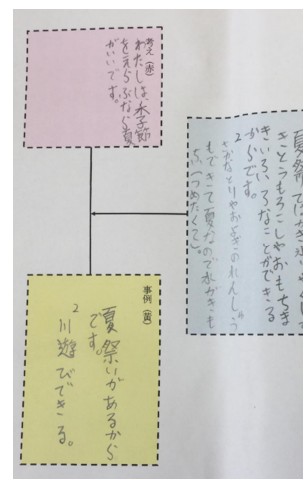 考え(赤)
わたしは、季節
をえらぶなら夏
がいいです。
夏祭でかき氷
きとうもろこしやおもちま
きいろいろなことができる
からです。
2 さかなとりやおよぎのれんしゅう
もできて夏なので水がきも
ちい(つめたくて)。
事例(黄)
夏祭いがあるから
です。
2 川遊びできる。